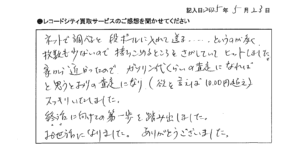 記入日2025年5月23日
●レコードシティ買取サービスのご感想を聞かせてください
ネットで調べると段ボールに入れて送る……というのが多く
枚数も少ないので持ちこめるところをさがしていてヒットしました。
家から近かったのでガソリン代くらいの査定になれば
と思うとおりの査定になり(欲を言えば10,000円超え)
スッキリいたしました。
終活に向けての第一歩を踏み出しました。
お世話になりました。ありがとうございました。